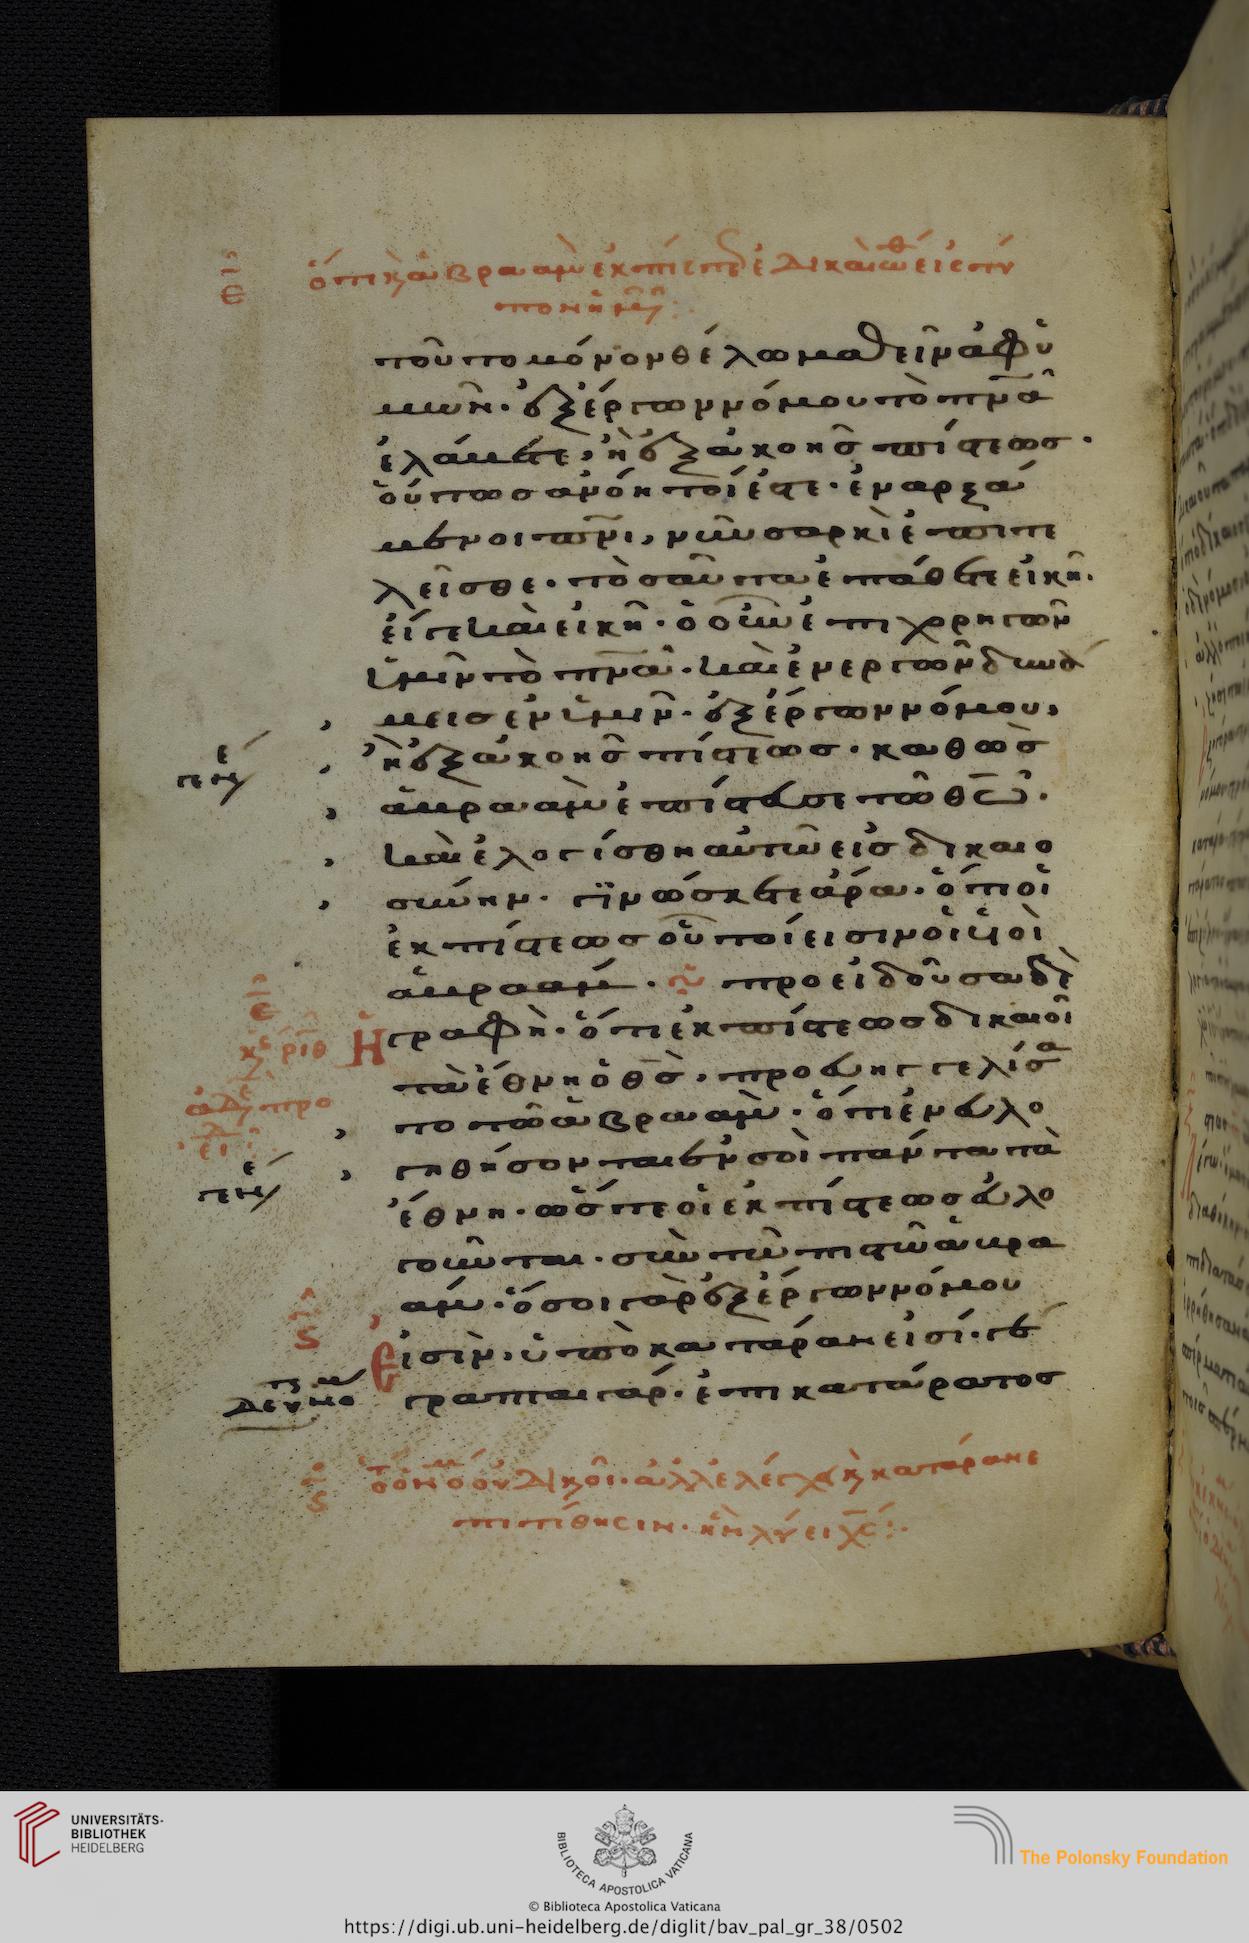 ε ὅτι κ ἀβρααμ ἐκ πίστε δὲ δικαιωθεὶς ἐστὶ
τουτο μόνον θέλω μαθεῖν ἀφ ὑ
μων. ἐξ ἔργων νόμου τὸ πνα
ἐλάβετε, ἢ ἐξ ἀκοῆς πίστεως.
οὕτως ἀνόητοί ἐστε. ἐναρξά
μενοι πνι, νῦν σαρκὶ ἐπιτε
λεῖσθε. τοσαῦτα ἐπάθετε εἰκῆ.
εἴγε καὶ εἰκῆ. ὁ οὖν ἐπιχορηγῶν
ὑμῖν τὸ πνα. καὶ ἐνεργῶν δυνά
μεις ἐν ὑμῖν. ἐξ ἔργων νόμου,
ἢ ἐξ ἀκοῆς πίστεως. καθὼς
ἀβραὰμ ἐπίστευσε τῶ θω.
καὶ ἐλογίσθη αὐτῶ εἰς δικαιο
σύνην. γινώσκετε ἄρα. ὅτι οἱ
ἐκ πίστεως οὗτοί εἰσιν οἱ υἱοὶ
ἀβραάμ. προειδοῦσα δὲ
Η γραφὴ. ὅτι ἐκ πίστεως δικαιοῖ
τὰ ἔθνη ὁ θς, προευηγγελίσα
το τῶ ἀβραὰμ. ὅτι ἐνευλο
γηθήσονται ἐν σοὶ πάντα τὰ
ἔθνη. ὥστε οἱ ἐκ πίστεως εὐλο
γοῦνται. σὺν τῶ πιστῶ ἀβρα
άμ. ὅσοι γὰρ ἐξ ἔργων νόμου
Εἰσὶν. ὑπὸ κατάραν εἰσί. γέ
γραπται γάρ. ἐπικατάρατος
ὅτι ὁ νόμο οὐ δικοῖ. ἀλλ ἐλέγχει κ κατάραν ἐ
πιτίθησιν. ἣν λύει χς
UNIVERSITÄTS-
BIBLIOTHEK
HEIDELBERG
BIBLIOTECA APOSTOLICA VATICANA
© Biblioteca Apostolica Vaticana
The Polonsky Foundation
https://digi.ub.uni-heidelberg.de/diglit/bav_pal_gr_38/0502